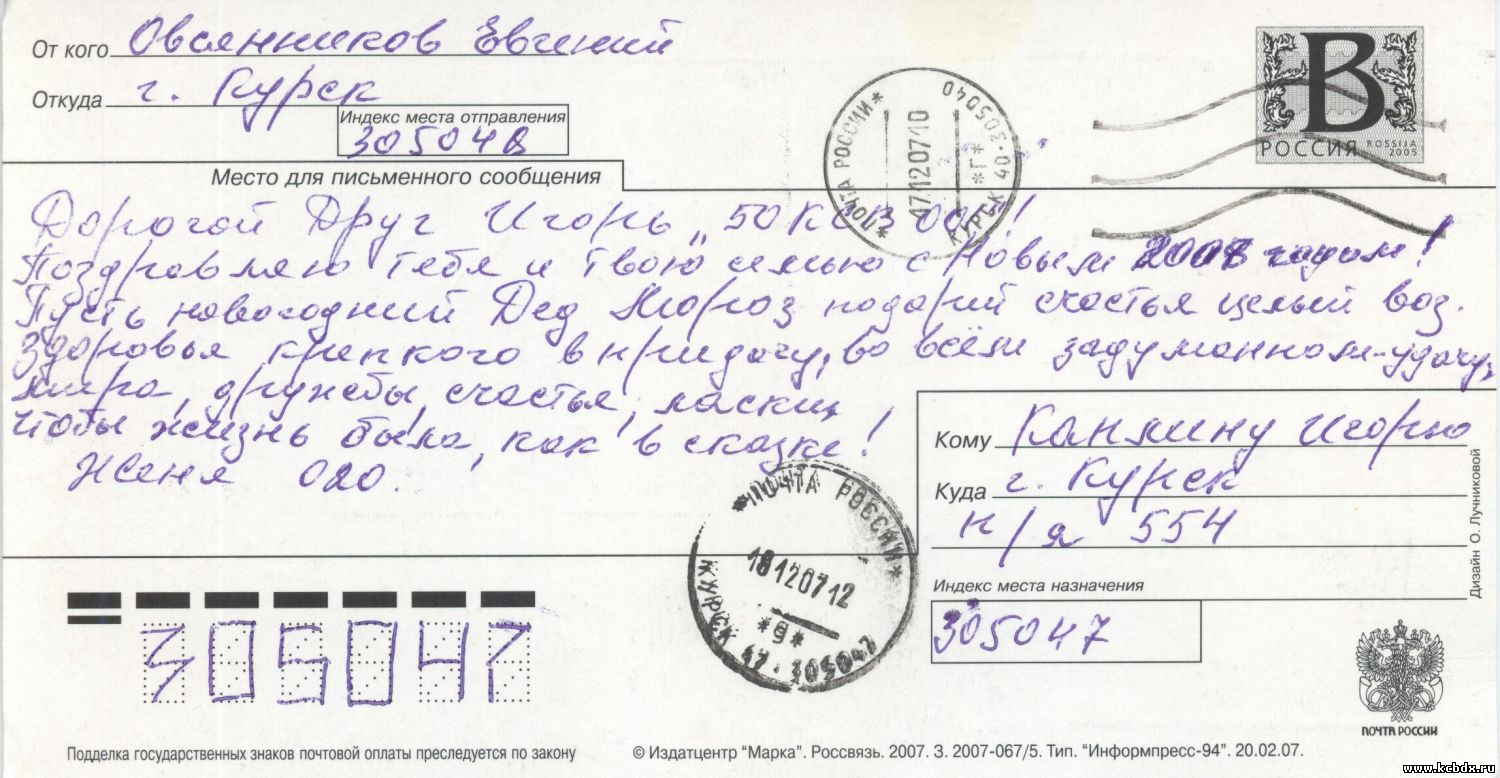 От кого Овсянников Евгений
Откуда г. Курск
Индекс места отправления
305040
В
РОССИЯ ROSSIJA
2005
*ПОЧТА РОССИИ*
17120710
КУРСК *г* 40-305040
Место для письменного сообщения
Дорогой Друг Игорь „50 КСВ 001“!
Поздравляю тебя и твою семью с Новым 2008 годом!
Пусть новогодний Дед Мороз подарит счастья целый воз.
Здоровья крепкого в придачу, во всём задуманном-удачу,
мира, дружбы, счастья, ласки,
чтобы жизнь была, как в сказке!
Женя 020.
Кому Канлину Игорю
Куда г. Курск
п/я 554
Индекс места назначения
305047
*ПОЧТА РОССИИ*
18120712
*g*
КУРСК 47-305047
305047
Дизайн О. Лучниковой
ПОЧТА РОССИИ
Подделка государственных знаков почтовой оплаты преследуется по закону
© Издатцентр "Марка". Россвязь. 2007. З. 2007-067/5. Тип. "Информпресс-94". 20.02.07.
www.kcbdx.ru